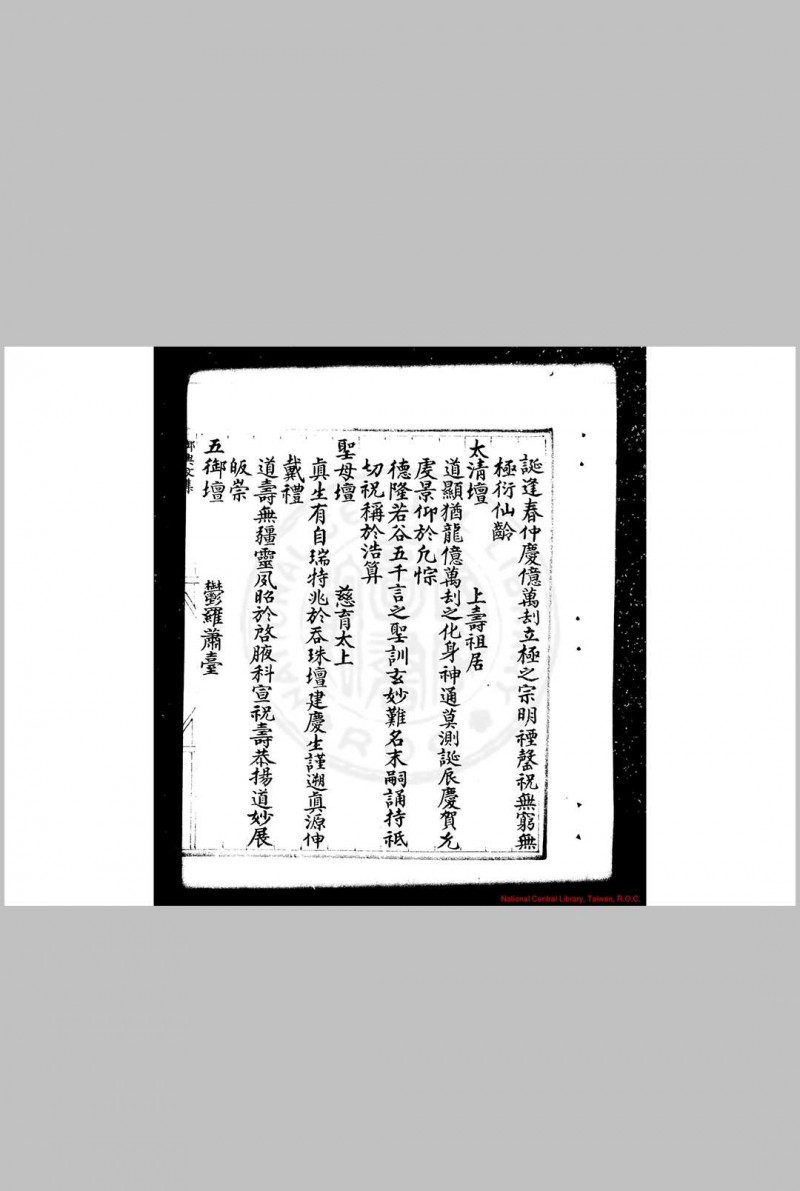 誕逢春仲慶億萬刦立極之宗明禋罄祝無窮無
極衍仙齡
太清壇　上壽祖居
道顯猶龍億萬刦之化身神通莫測誕辰慶賀允
虔景仰於允悰
德隆若谷五千言之聖訓玄妙難名末嗣誦持祗
切祝稱於浩算
聖母壇　慈育太上
眞生有自瑞特兆於吞珠壇建慶生謹遡眞源伸
戴禮
道壽無疆靈夙昭於啓腋科宣祝壽恭揚道妙展
皈崇
五御壇　鬱羅蕭臺
National Central Library, Taiwan, R.O.C.